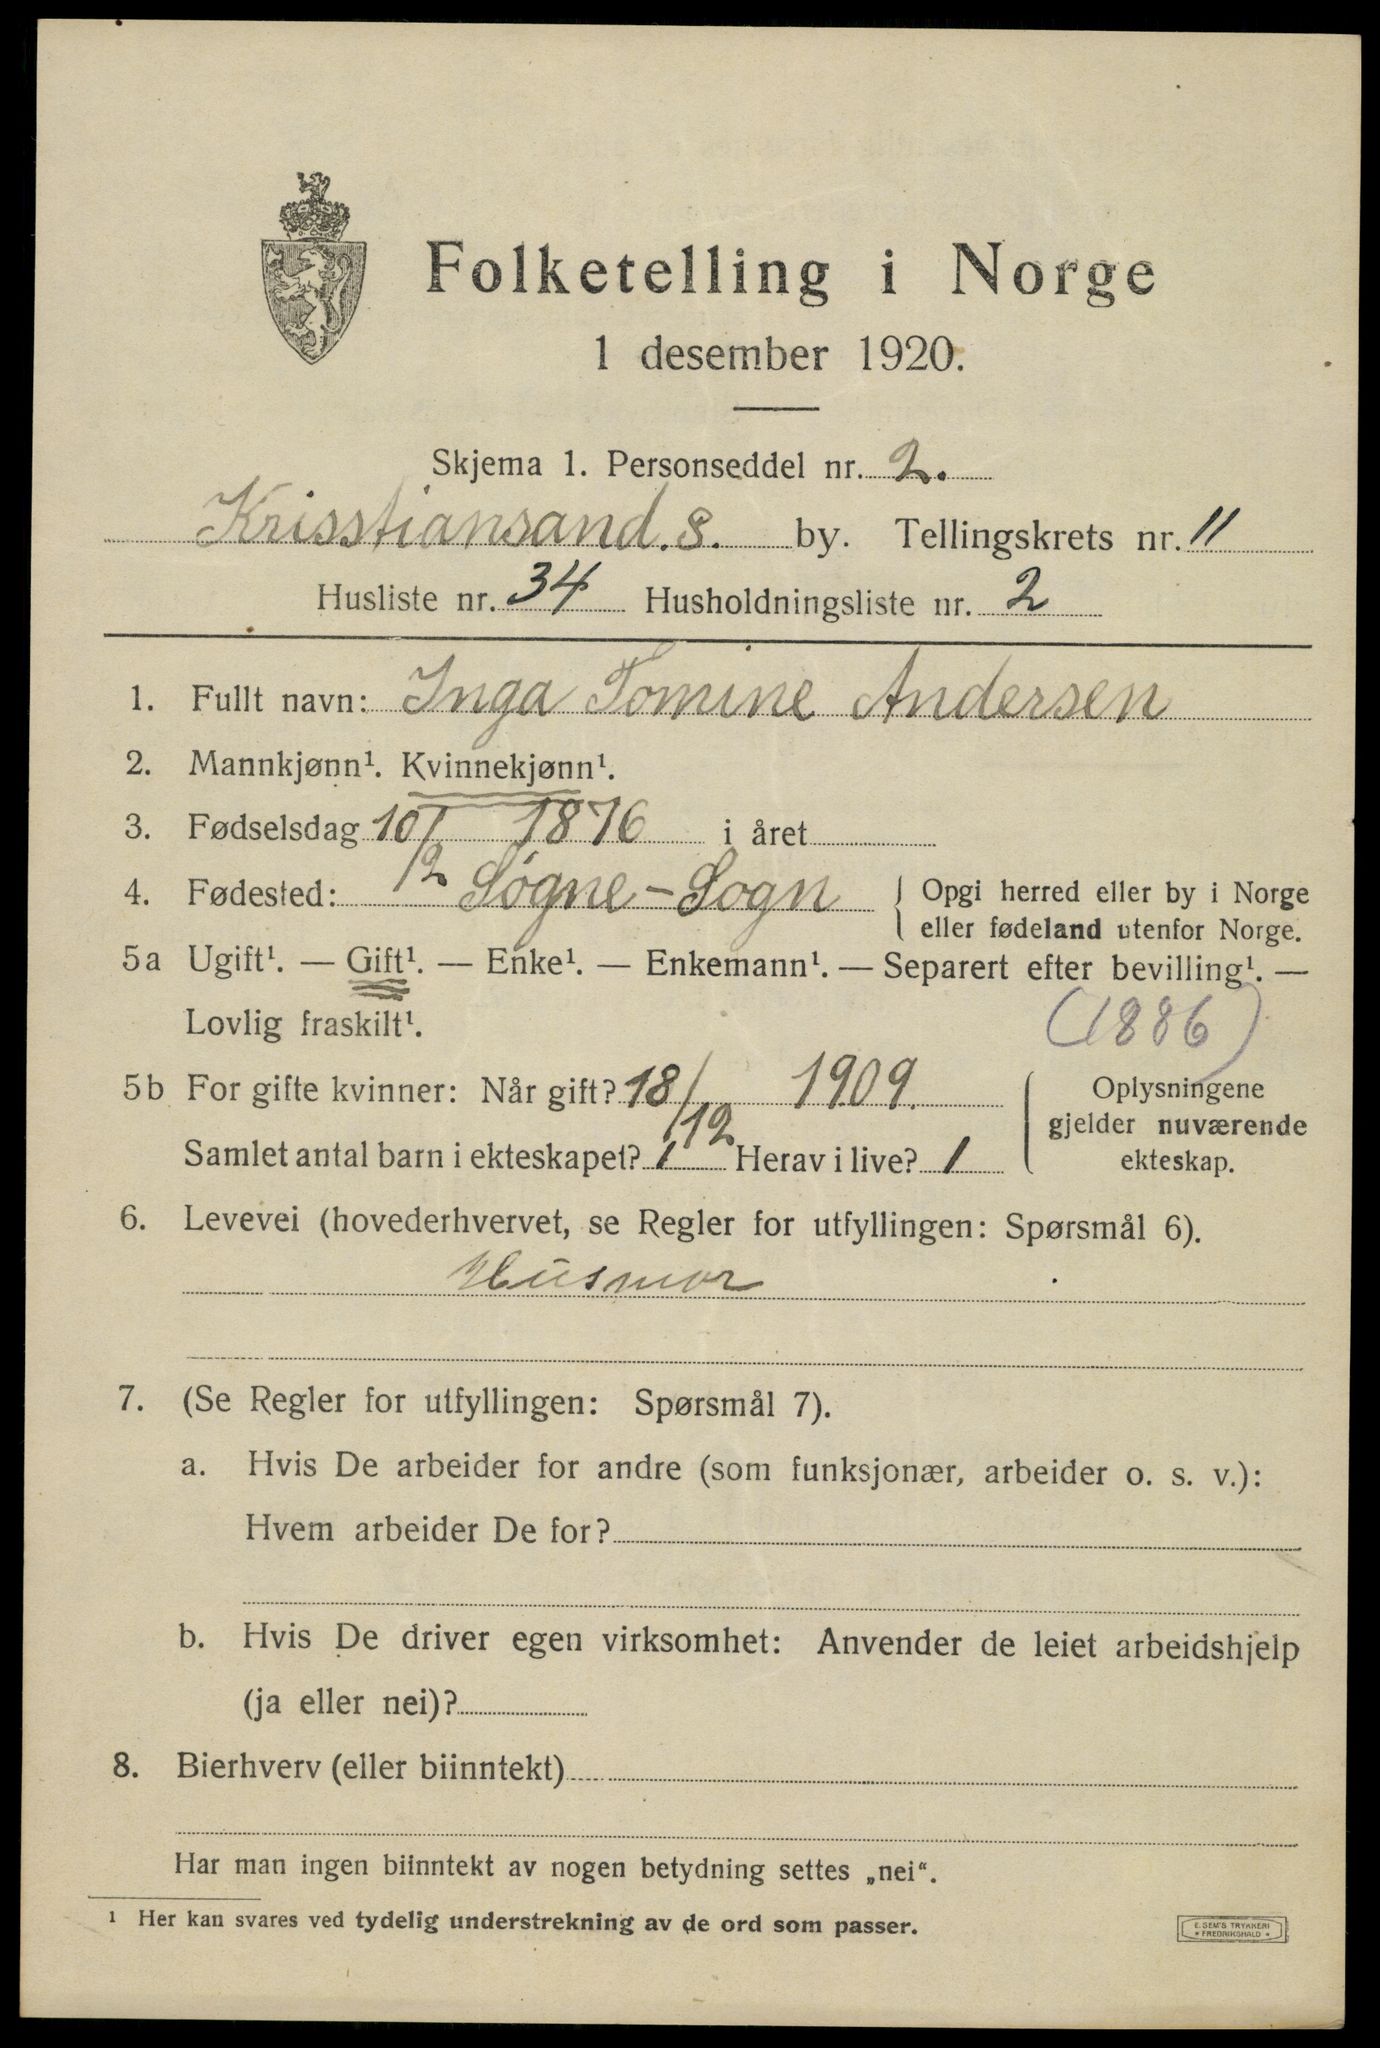 Folketelling i Norge
1 desember 1920.
Skjema 1. Personseddel nr. 2.
Krisstiansand. S. by. Tellingskrets nr. 11
Husliste nr. 34 Husholdningsliste nr. 2
1. Fullt navn: Inga Tomine Andersen
2. Mannkjønn¹. Kvinnekjønn¹.
3. Fødselsdag 10/2 1876 i året
4. Fødested: Søgne-Sogn { Opgi herred eller by i Norge
eller fødeland utenfor Norge.
5a Ugift¹. — Gift¹. — Enke¹. — Enkemann¹. — Separert efter bevilling¹. —
Lovlig fraskilt¹. (1886)
5b For gifte kvinner: Når gift? 18/12 1909. Oplysningene
gjelder nuværende
Samlet antal barn i ekteskapet? 1 Herav i live? 1 ekteskap.
6. Levevei (hovederhvervet, se Regler for utfyllingen: Spørsmål 6).
Husmor
7. (Se Regler for utfyllingen: Spørsmål 7).
a. Hvis De arbeider for andre (som funksjonær, arbeider o. s. v.):
Hvem arbeider De for?
b. Hvis De driver egen virksomhet: Anvender de leiet arbeidshjelp
(ja eller nei)?
8. Bierhverv (eller biinntekt)
Har man ingen biinntekt av nogen betydning settes „nei“.
1 Her kan svares ved tydelig understrekning av de ord som passer.
E. SEM'S TRYKKERI
* FREDRIKSHALD *